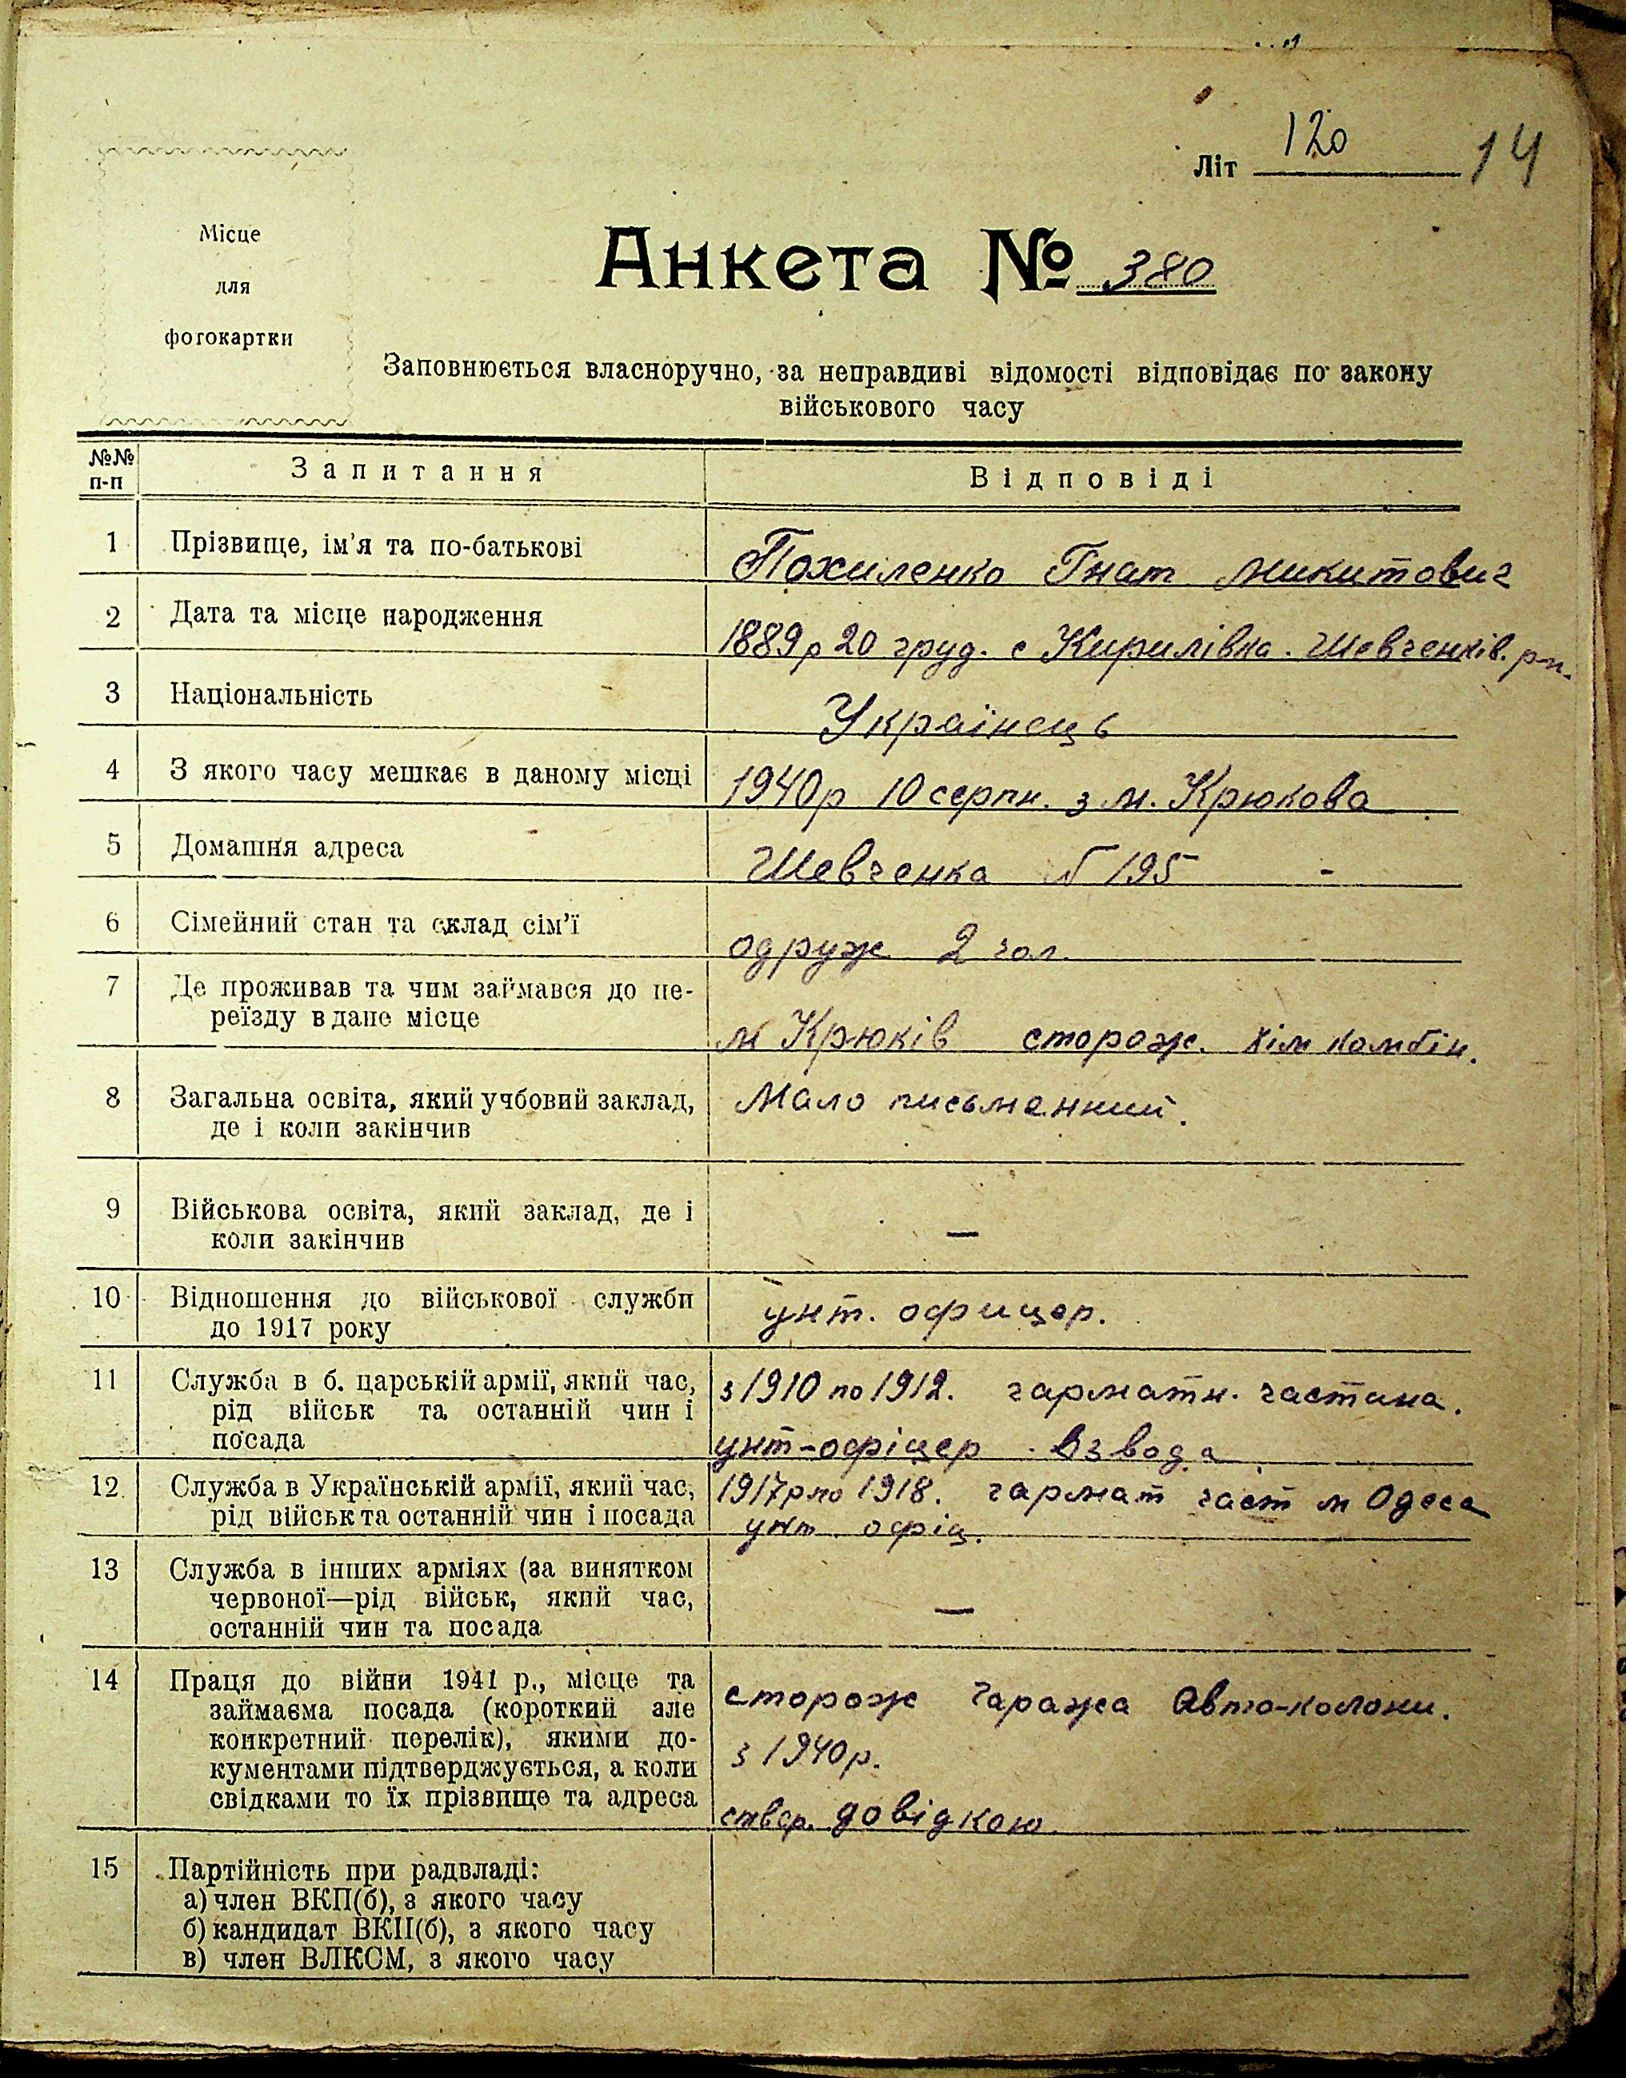 120
Літ 14
Місце
для
фотокартки
Анкета № 380
Заповнюється власноручно, за неправдиві відомості відповідає по закону
військового часу
№№ п-п Запитання Відповіді
1 Прізвище, ім'я та по-батькові Похиленко Гнат Микитович
2 Дата та місце народження 1889 р 20 груд. с Кирилівка. Шевченків. р-н.
3 Національність Українець
4 З якого часу мешкає в даному місці 1940 р 10 серпн. з м. Крюкова
5 Домашня адреса Шевченка № 195
6 Сімейний стан та склад сім'ї одруж 2 чол.
7 Де проживав та чим займався до пе-
реїзду в дане місце м Крюків сторож. хім комбін.
8 Загальна освіта, який учбовий заклад, Мало письменний.
де і коли закінчив
9 Військова освіта, який заклад, де і
коли закінчив —
10 Відношення до військової служби унт. офицер.
до 1917 року
11 Служба в б. царській армії, який час, з 1910 по 1912. гарматн. частина.
рід військ та останній чин і
посада унт-офіцер. Взвода
12 Служба в Українській армії, який час, 1917 р по 1918. гармат част м Одеса
рід військ та останній чин і посада унт. офіц.
13 Служба в інших арміях (за винятком
червоної—рід військ, який час, —
останній чин та посада
14 Праця до війни 1941 р., місце та сторож гаража Авто-колони.
займаєма посада (короткий але
конкретний перелік), якими до- з 1940 р.
кументами підтверджується, а коли
свідками то їх прізвище та адреса ствер. довідкою
15 Партійність при радвладі:
а) член ВКП(б), з якого часу
б) кандидат ВКП(б), з якого часу
в) член ВЛКСМ, з якого часу